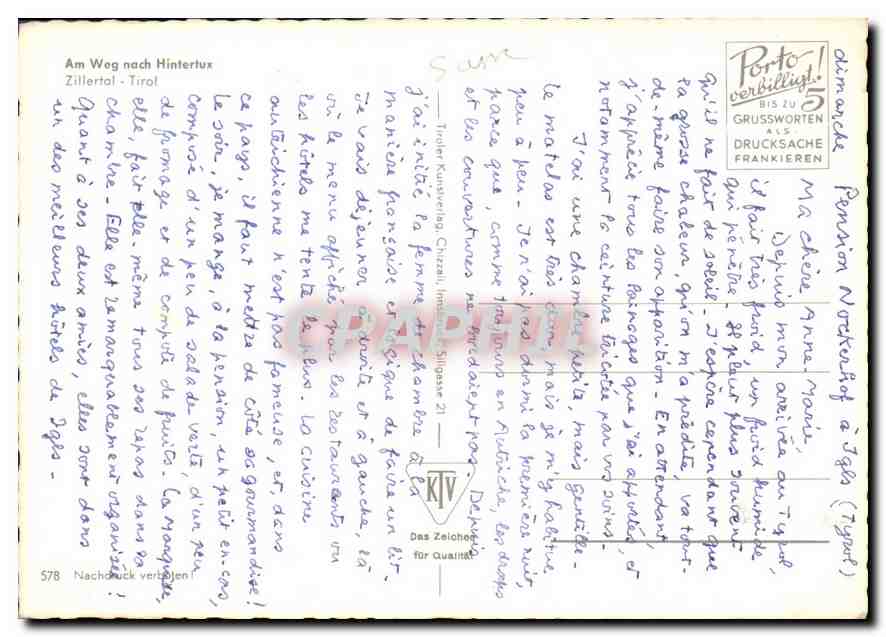 Am Weg nach Hintertux
Zillertal - Tirol
Porto
verbilligt!
5
BIS ZU
GRUSSWORTEN
ALS
DRUCKSACHE
FRANKIEREN
dimanche Pension Nockerhof à Igls (Tyrol)
Ma chère Anne-Marie,
Depuis mon arrivée au Tyrol,
il fait très froid, un froid humide
qui pénètre. Il pleut plus souvent
qu'il ne fait de soleil. J'espère cependant que
la grosse chaleur, qu'on m'a prédite, va tout-
de-même faire son apparition. En attendant,
j'apprécie tous les lainages que j'ai apportés, et
notamment la ceinture tricotée par vos soins.
J'ai une chambre petite, mais gentille.
Le matelas est très dur, mais je m'y habitue
peu à peu. Je n'ai pas dormi la première nuit,
parce que, comme toujours en Autriche, les draps
et les couvertures ne bordaient pas. Depuis
j'ai initié la femme de chambre à la
manière française et logique de faire un lit.
Je vais déjeuner, à droite et à gauche, là
où le menu affiché par les restaurants ou
les hôtels me tente le plus. La cuisine
autrichienne n'est pas fameuse, et, dans
ce pays, il faut mettre de côté sa gourmandise!
Le soir, je mange, à la pension, un petit en-cas,
composé d'un peu de salade verte, d'un peu
de fromage et de compote de fruits. La Marquise,
elle, fait elle-même tous ses repas dans sa
chambre. Elle est remarquablement organisée!
Quant à ses deux amies, elles sont dans
un des meilleurs hôtels de Igls.
Tiroler Kunstverlag, Chizzali, Innsbruck, Sillgasse 21
KTV
Das Zeichen
für Qualität
578 Nachdruck verboten!
CPAPHIL